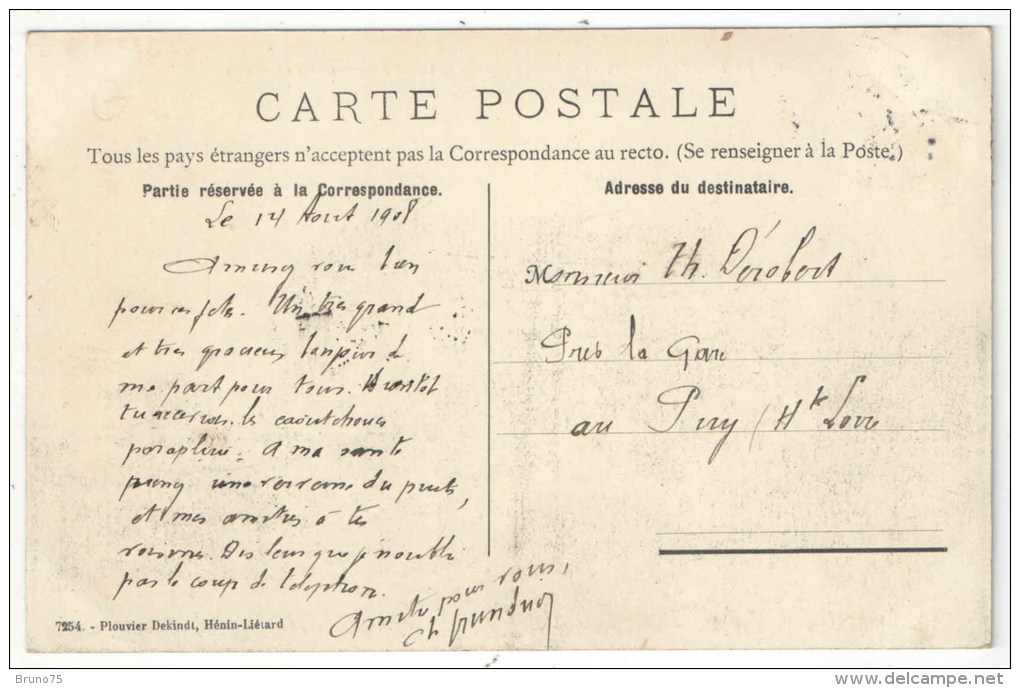 CARTE POSTALE
Tous les pays étrangers n'acceptent pas la Correspondance au recto. (Se renseigner à la Poste.)
Partie réservée à la Correspondance.
Adresse du destinataire.
Le 14 Aout 1908
Amusez vous bien
pour ces fetes. Un tres grand
et tres gracieux bonjour de
ma part pour tous. Bientôt
tu recevras les caoutchoucs
parapluie. A ma santé
une du puits,
et mes amitiés à tes
voisines. Dis leur que je n'oublie
pas le coup de telephone.
Amitiés pour vous,
Ch
Monsieur Th. Dérobert
Près la Gare
au Puy (Hte Loire
7254. - Plouvier Dekindt, Hénin-Liétard
Bruno75
delcampe.net